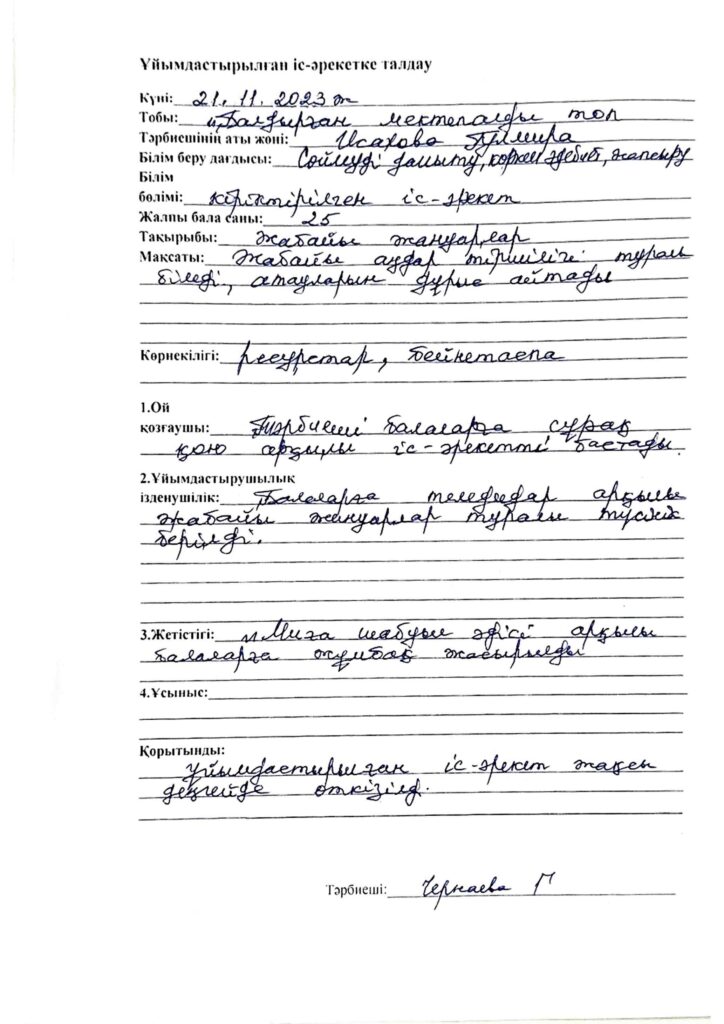 Ұйымдастырылған іс-әрекетке талдау
Күні: 21. 11. 2023 ж
Тобы: "Балдырған мектепалды топ
Тәрбиешінің аты жөні: Исахова
Білім беру дағдысы: Сөйлеуді дамыту, көркем әдебиет, жапсыру
Білім
бөлімі: кіріктірілген іс-әрекет
Жалпы бала саны: 25
Тақырыбы: Жабайы жануарлар
Мақсаты: Жабайы аңдар тіршілігі туралы
біледі, атауларын дұрыс айтады
Көрнекілігі: ресурстар, бейнетаспа
1.Ой
қозғаушы: Тәрбиеші балаларға сұрақ
қою арқылы іс-әрекетті бастады.
2.Ұйымдастырушылық
ізденушілік: Балаларға теледидар арқылы
жабайы жануарлар туралы түсінік
берілді.
3.Жетістігі: "Миға шабуыл әдісі арқылы
балаларға жұмбақ жасырылды
4.Ұсыныс:
Қорытынды:
Ұйымдастырылған іс-әрекет жақсы
деңгейде өткізілд.
Тәрбиеші: Чернаева Г